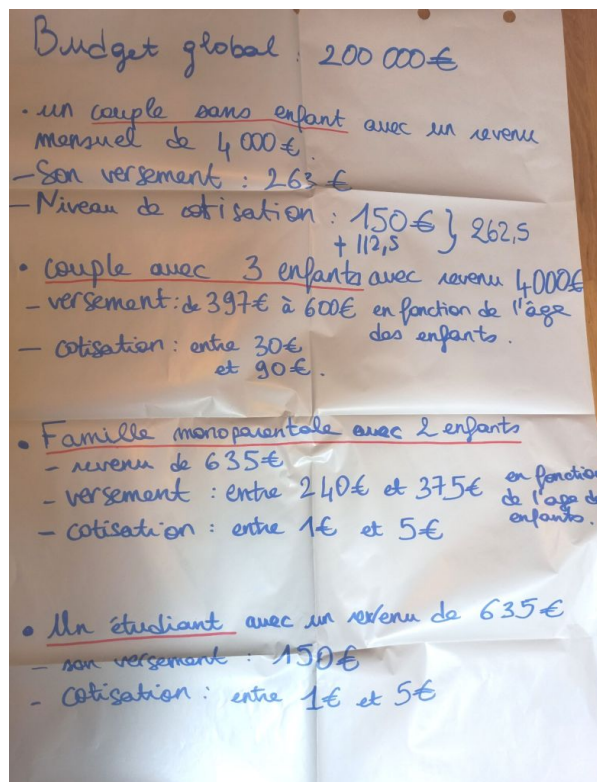 Budget global : 200 000€
• un couple sans enfant avec un revenu
mensuel de 4 000€.
- Son versement : 263 €
- Niveau de cotisation : 150€ } 262,5
+ 112,5
• couple avec 3 enfants avec revenu 4000€
- versement : de 397€ à 600€ en fonction de l'âge
des enfants.
- cotisation : entre 30€
et 90€.
• Famille monoparentale avec 2 enfants
- revenu de 635€
- versement : entre 240€ et 375€ en fonction
de l'age de
enfants.
- cotisation : entre 1€ et 5€
• Un étudiant avec un revenu de 635€
- son versement : 150€
- cotisation : entre 1€ et 5€